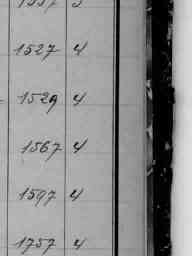 1527 4
1529 4
1567 4
1597 4
1757 4